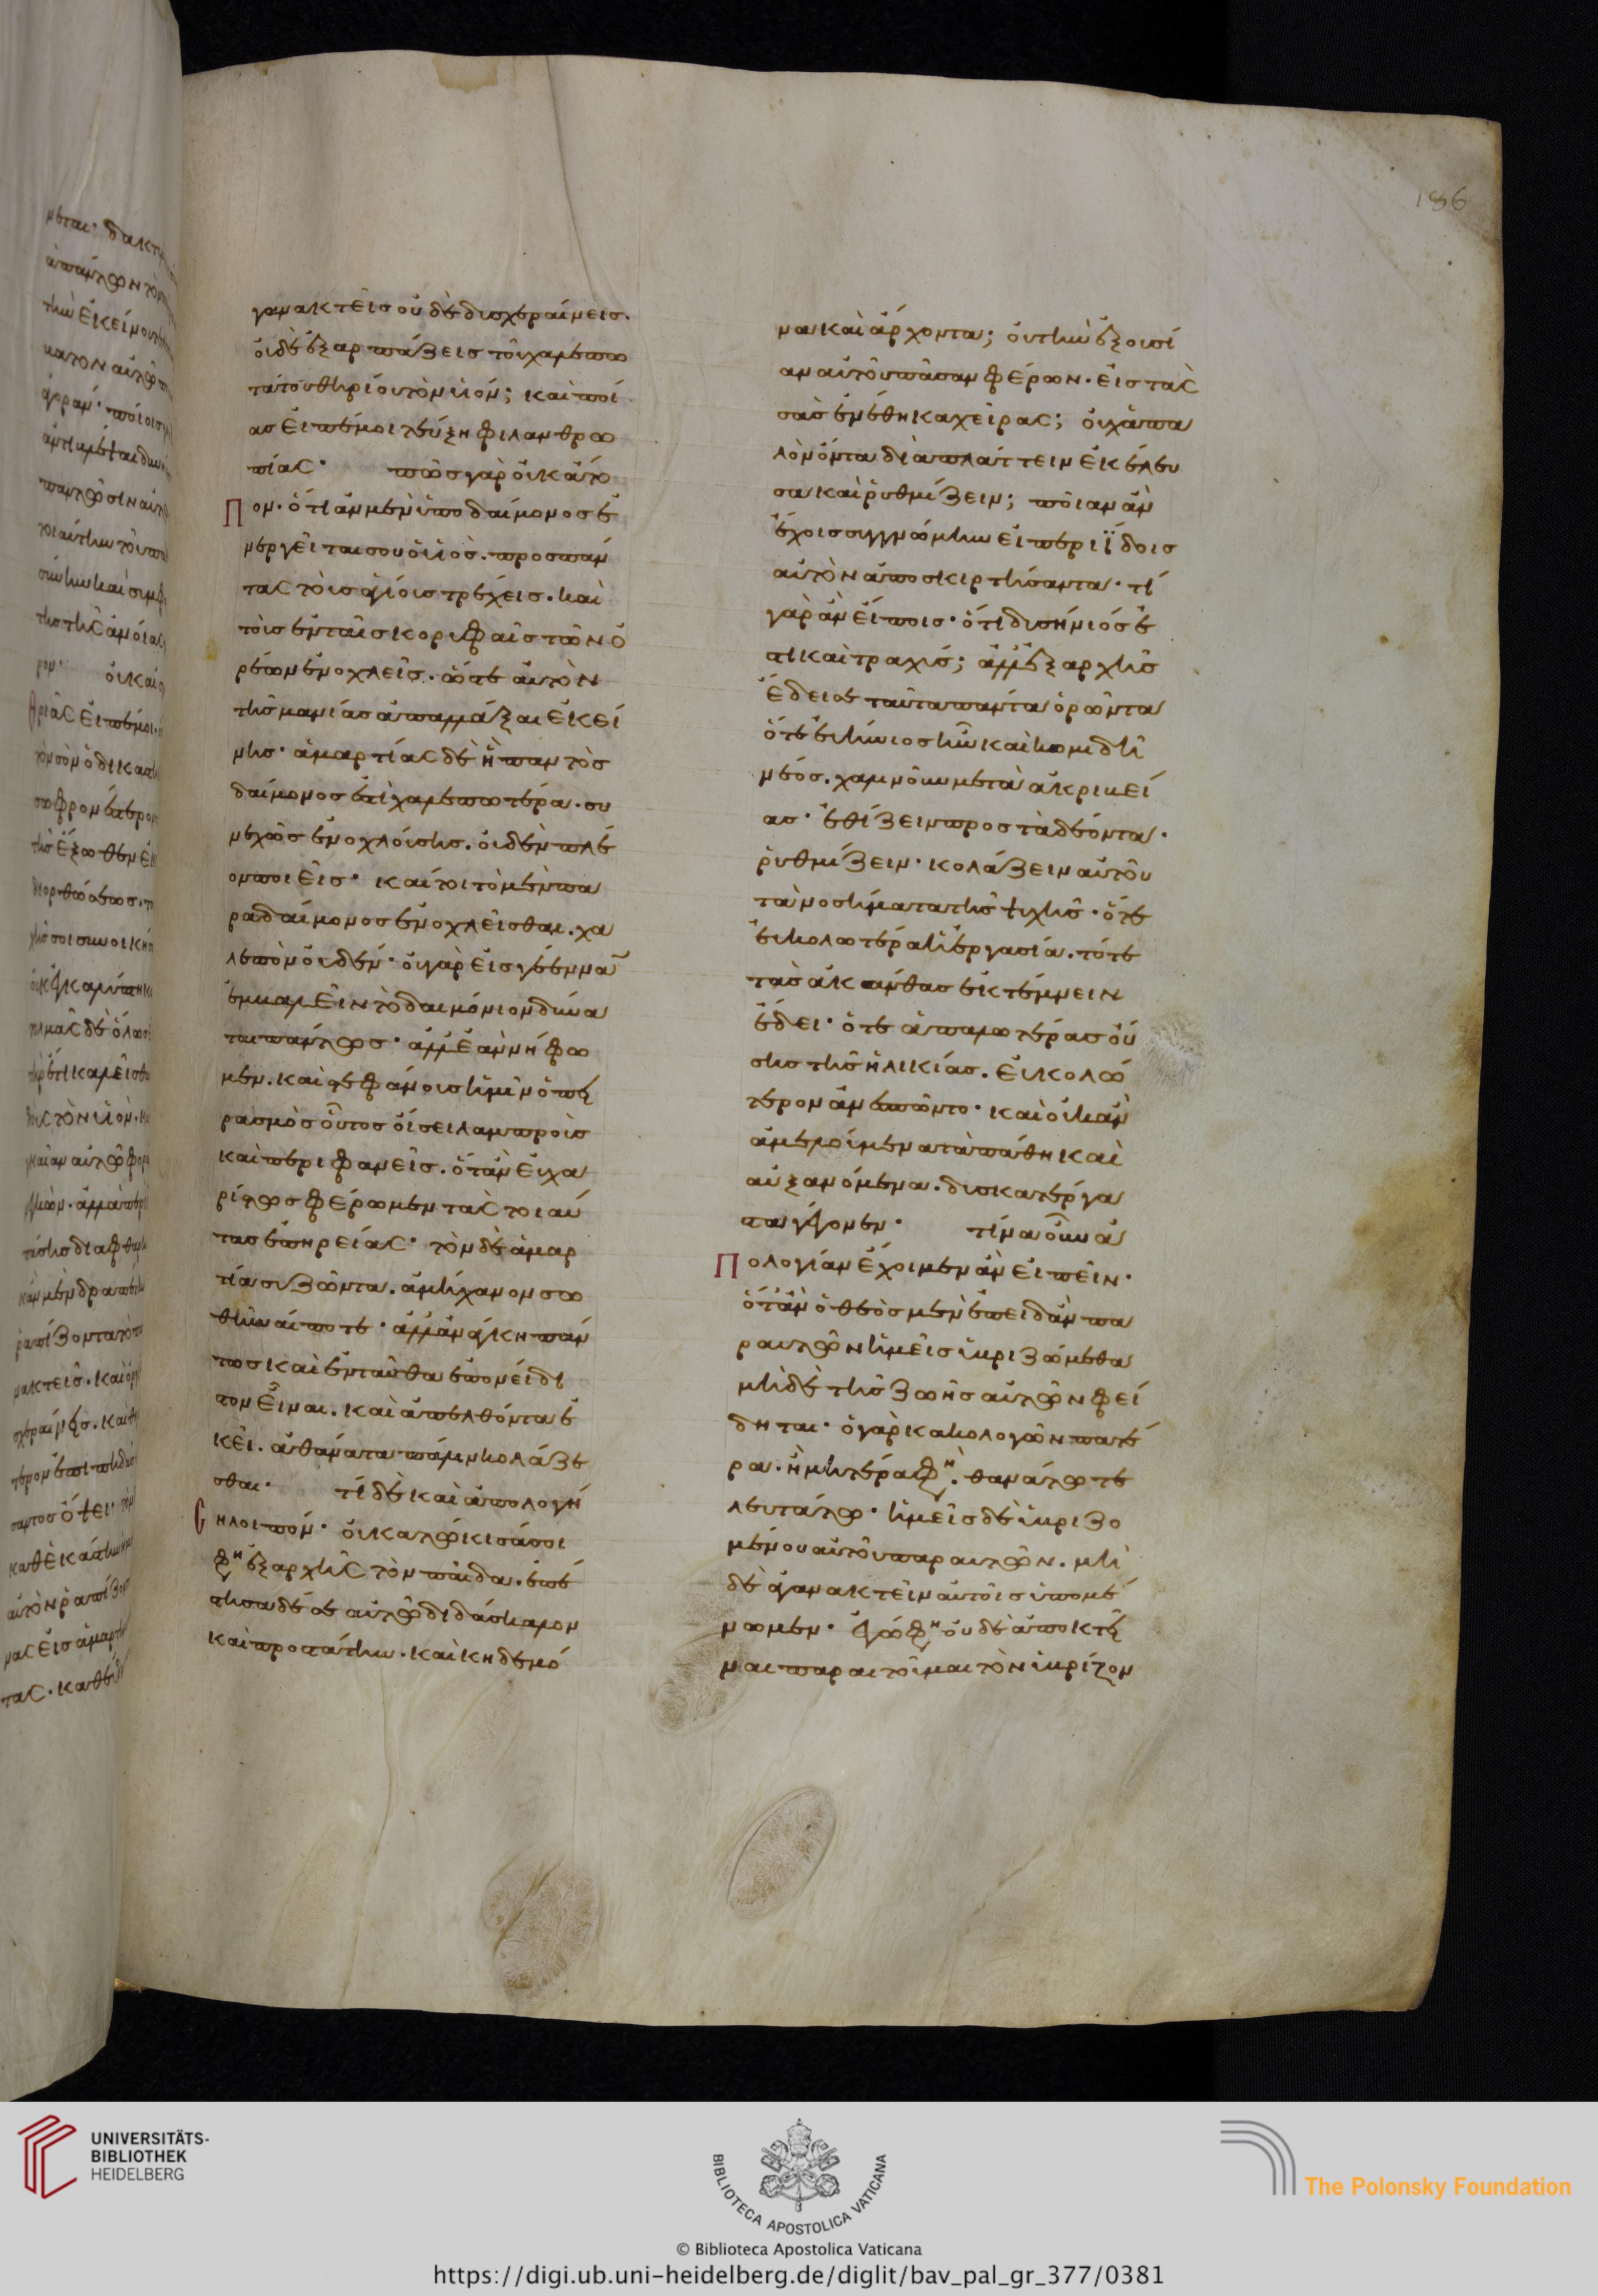 γανακτεῖς οὐδὲ δυσχεραίνεις.
οὐδὲ ἐξαρπάζεις τοῦ χαλεπω
τάτου θηρίου τὸν υἱόν; καὶ ποί
ας εἰπέ μοι τεύξη φιλανθρω
πίας· πῶς γὰρ οὐκ ἄτο
Πον· ὅτι ἂν μὲν ὑπο δαίμονος ἐ
νεργεῖται σου ὁ υἱὸς. προς πάν
τας τοὺς ἁγίους τρέχεις. καὶ
τοῖς ἐν ταῖς κορυφαῖς τῶν ὀ
ρέων ἐνοχλεῖς. ὥστε αὐτὸν
τῆς μανίας ἀπαλλάξαι ἐκεί
νης· ἁμαρτίας δὲ ἣ παντὸς
δαίμονος ἐστὶ χαλεπωτέρα. συ
νεχῶς ἐνοχλούσης. οὐδὲν πλέ
ον ποιεῖς· καίτοι τὸ μὲν πα
ρα δαίμονος ἐνοχλεῖσθαι. χα
λεπὸν οὐδέν· οὐ γὰρ εἰς γέενναν
ἐμβαλεῖν τὸ δαιμόνιον δύνα
ται πάντως· ἀλλ' ἐὰν νήφω
μεν. καὶ στεφάνους ἡμῖν ὁ πει
ρασμὸς οὗτος οἴσει λαμπροὺς
καὶ περιφανεῖς. ὅταν εὐχα
ρίστως φέρωμεν τὰς τοιαύ
τας ἐπηρείας· τὸν δὲ ἁμαρ
τία συζῶντα. ἀμήχανον σω
θῆναί ποτε· ἀλλ' ἀνάγκη πάν
τως καὶ ἐνταῦθα ἐπονείδι
τον εἶναι. καὶ ἀπελθόντα ἐ
κεῖ. ἀθάνατα πάλιν κολάζε
σθαι· τί δὲ καὶ ἀπολογή
Ση λοιπόν· οὐ κατώκισά σοι
φη ἐξ ἀρχῆς τὸν παῖδα. ἐπέ
στησα δέ σε αὐτῷ διδάσκαλον
καὶ προστάτην. καὶ κηδεμό
186
να καὶ ἄρχοντα; οὐ τὴν ἐξουσί
αν αὐτοῦ πᾶσαν φέρων. εἰς τὰς
σὰς ἐνέθηκα χεῖρας; οὐχ ἁπα
λὸν ὄντα διαπλάττειν ἐκέλευ
σα καὶ ῥυθμίζειν; ποίαν ἂν
ἔχοις συγγνώμην εἰ περιΐδοις
αὐτὸν ἀποσκιρτήσαντα· τί
γὰρ ἂν εἴποις· ὅτι δυσήνιός ἐ
στι καὶ τραχύς; ἀλλ' ἐξ ἀρχῆς
ἔδει σε ταῦτα πάντα ὁρῶντα
ὅτε εὐήνιος ἦν καὶ κομιδῆ
νέος. χαλινοῦν μετὰ ἀκριβεί
ας· ἐθίζειν προς τὰ δέοντα·
ῥυθμίζειν· κολάζειν αὐτοῦ
τὰ νοσήματα τῆς ψυχῆς· ὅτε
εὐκολωτέρα ἡ ἐργασία. τότε
τὰς ἀκάνθας ἐκτέμνειν
ἔδει· ὅτε ἁπαλωτέρας οὔ
σης τῆς ἡλικίας. εὐκολώ
τερον ἀνεσπῶντο· καὶ οὐκ ἂν
ἀμελούμενα τὰ πάθη καὶ
αὐξανόμενα. δυσκατέργα
στα γέγονεν· τίνα οὖν ἀ
Πολογίαν ἔχοιμεν ἂν εἰπεῖν·
ὅταν ὁ θεὸς μὲν ἐπειδὰν πα
ρ αυτῶν ἡμεῖς ὑβριζώμεθα
μηδὲ τῆς ζωῆς αὐτῶν φεί
δηται· ὁ γὰρ κακολογῶν πατέ
ρα. ἢ μητέρα φη. θανάτω τε
λευτάτω· ἡμεῖς δὲ ὑβριζο
μένου αὐτοῦ παρ αυτῶν. μη
δὲ ἀγανακτεῖν αὐτοῖς ὑπομέ
νωμεν· ἐγώ φη οὐδὲ ἀποκτεῖ
ναι παραιτοῦμαι τὸν ὑβρίζον
UNIVERSITÄTS-
BIBLIOTHEK
HEIDELBERG
BIBLIOTECA APOSTOLICA VATICANA
The Polonsky Foundation
© Biblioteca Apostolica Vaticana
https://digi.ub.uni-heidelberg.de/diglit/bav_pal_gr_377/0381